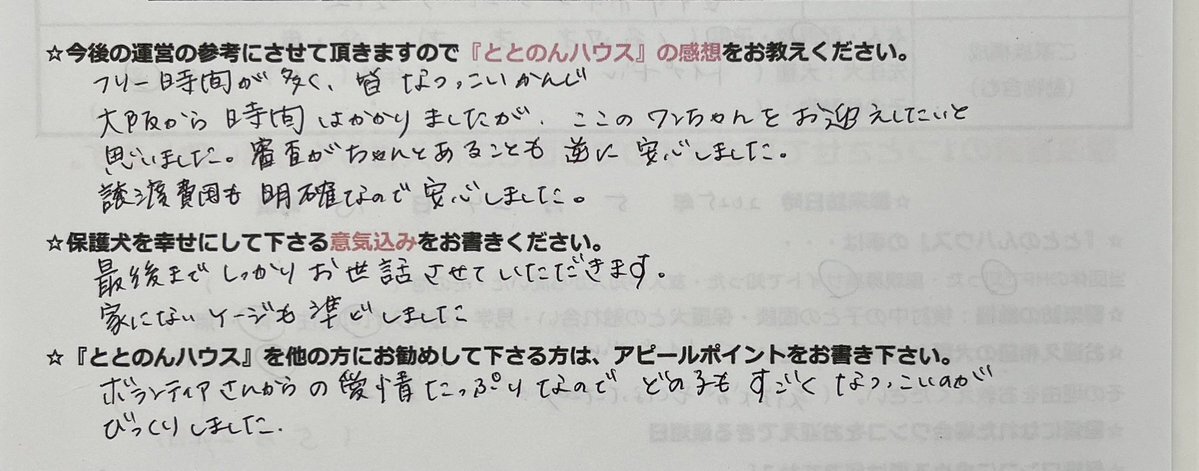 ☆今後の運営の参考にさせて頂きますので『ととのんハウス』の感想をお教えください。
フリー時間が多く、皆なつっこいかんじ
大阪から時間はかかりましたが、ここのワンちゃんをお迎えしたいと
思いました。審査がちゃんとあることも逆に安心しました。
譲渡費用も明確なので安心しました。
☆保護犬を幸せにして下さる意気込みをお書きください。
最後までしっかりお世話させていただきます。
家にないケージも準どしました
☆『ととのんハウス』を他の方にお勧めして下さる方は、アピールポイントをお書き下さい。
ボランティアさんからの愛情たっぷりなので どの子もすごくなつっこいのが
びっくりしました.